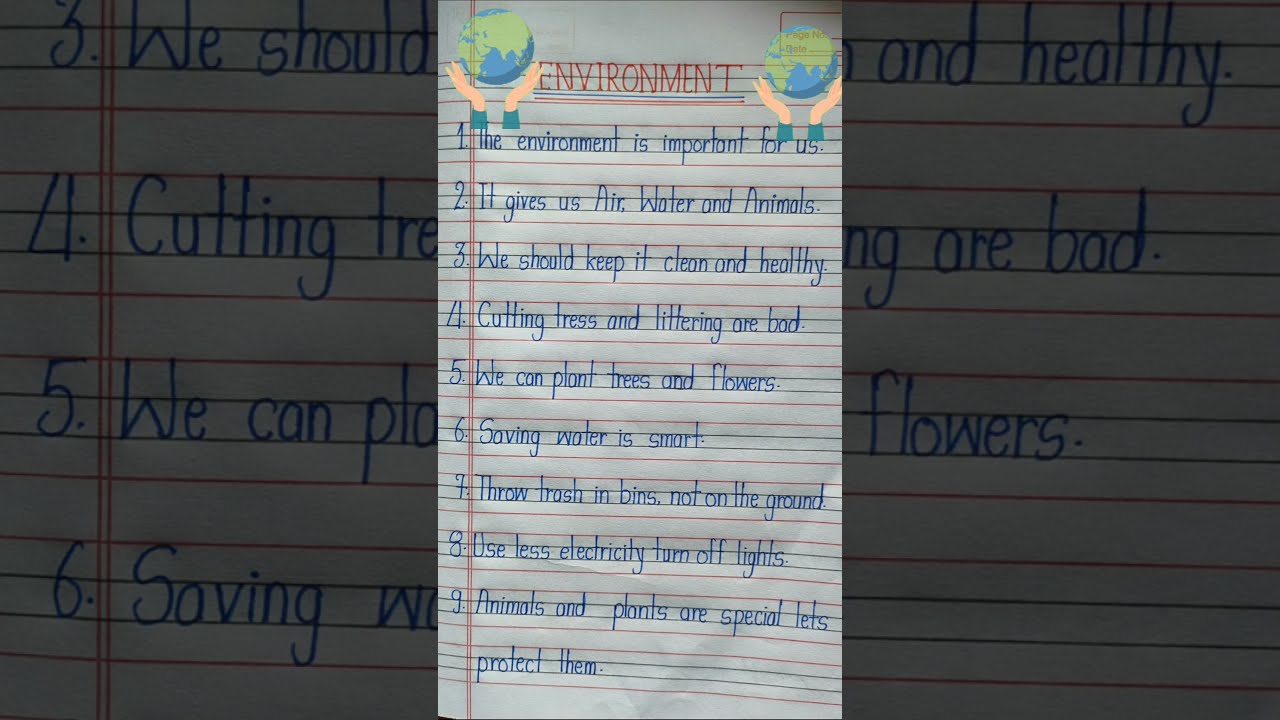 Page No.
Date
ENVIRONMENT
1. The environment is important for us.
2. It gives us Air, Water and Animals.
3. We should keep it clean and healthy.
4. Cutting tress and littering are bad.
5. We can plant trees and flowers.
6. Saving water is smart.
7. Throw trash in bins, not on the ground.
8. Use less electricity turn off lights.
9. Animals and plants are special lets
protect them.